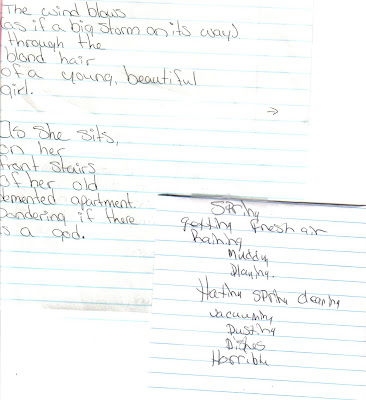 The wind blows
(as if a big storm on its way)
through the
blond hair
of a young, beautiful
girl.
→
As she sits,
on her
front stairs
of her old
demented apartment.
Pondering if there
is a god.
Spring
getting fresh air
Raining
Muddy
Playing.
Hating spring cleaning
vacuuming
Dusting
Dishes
Horrible